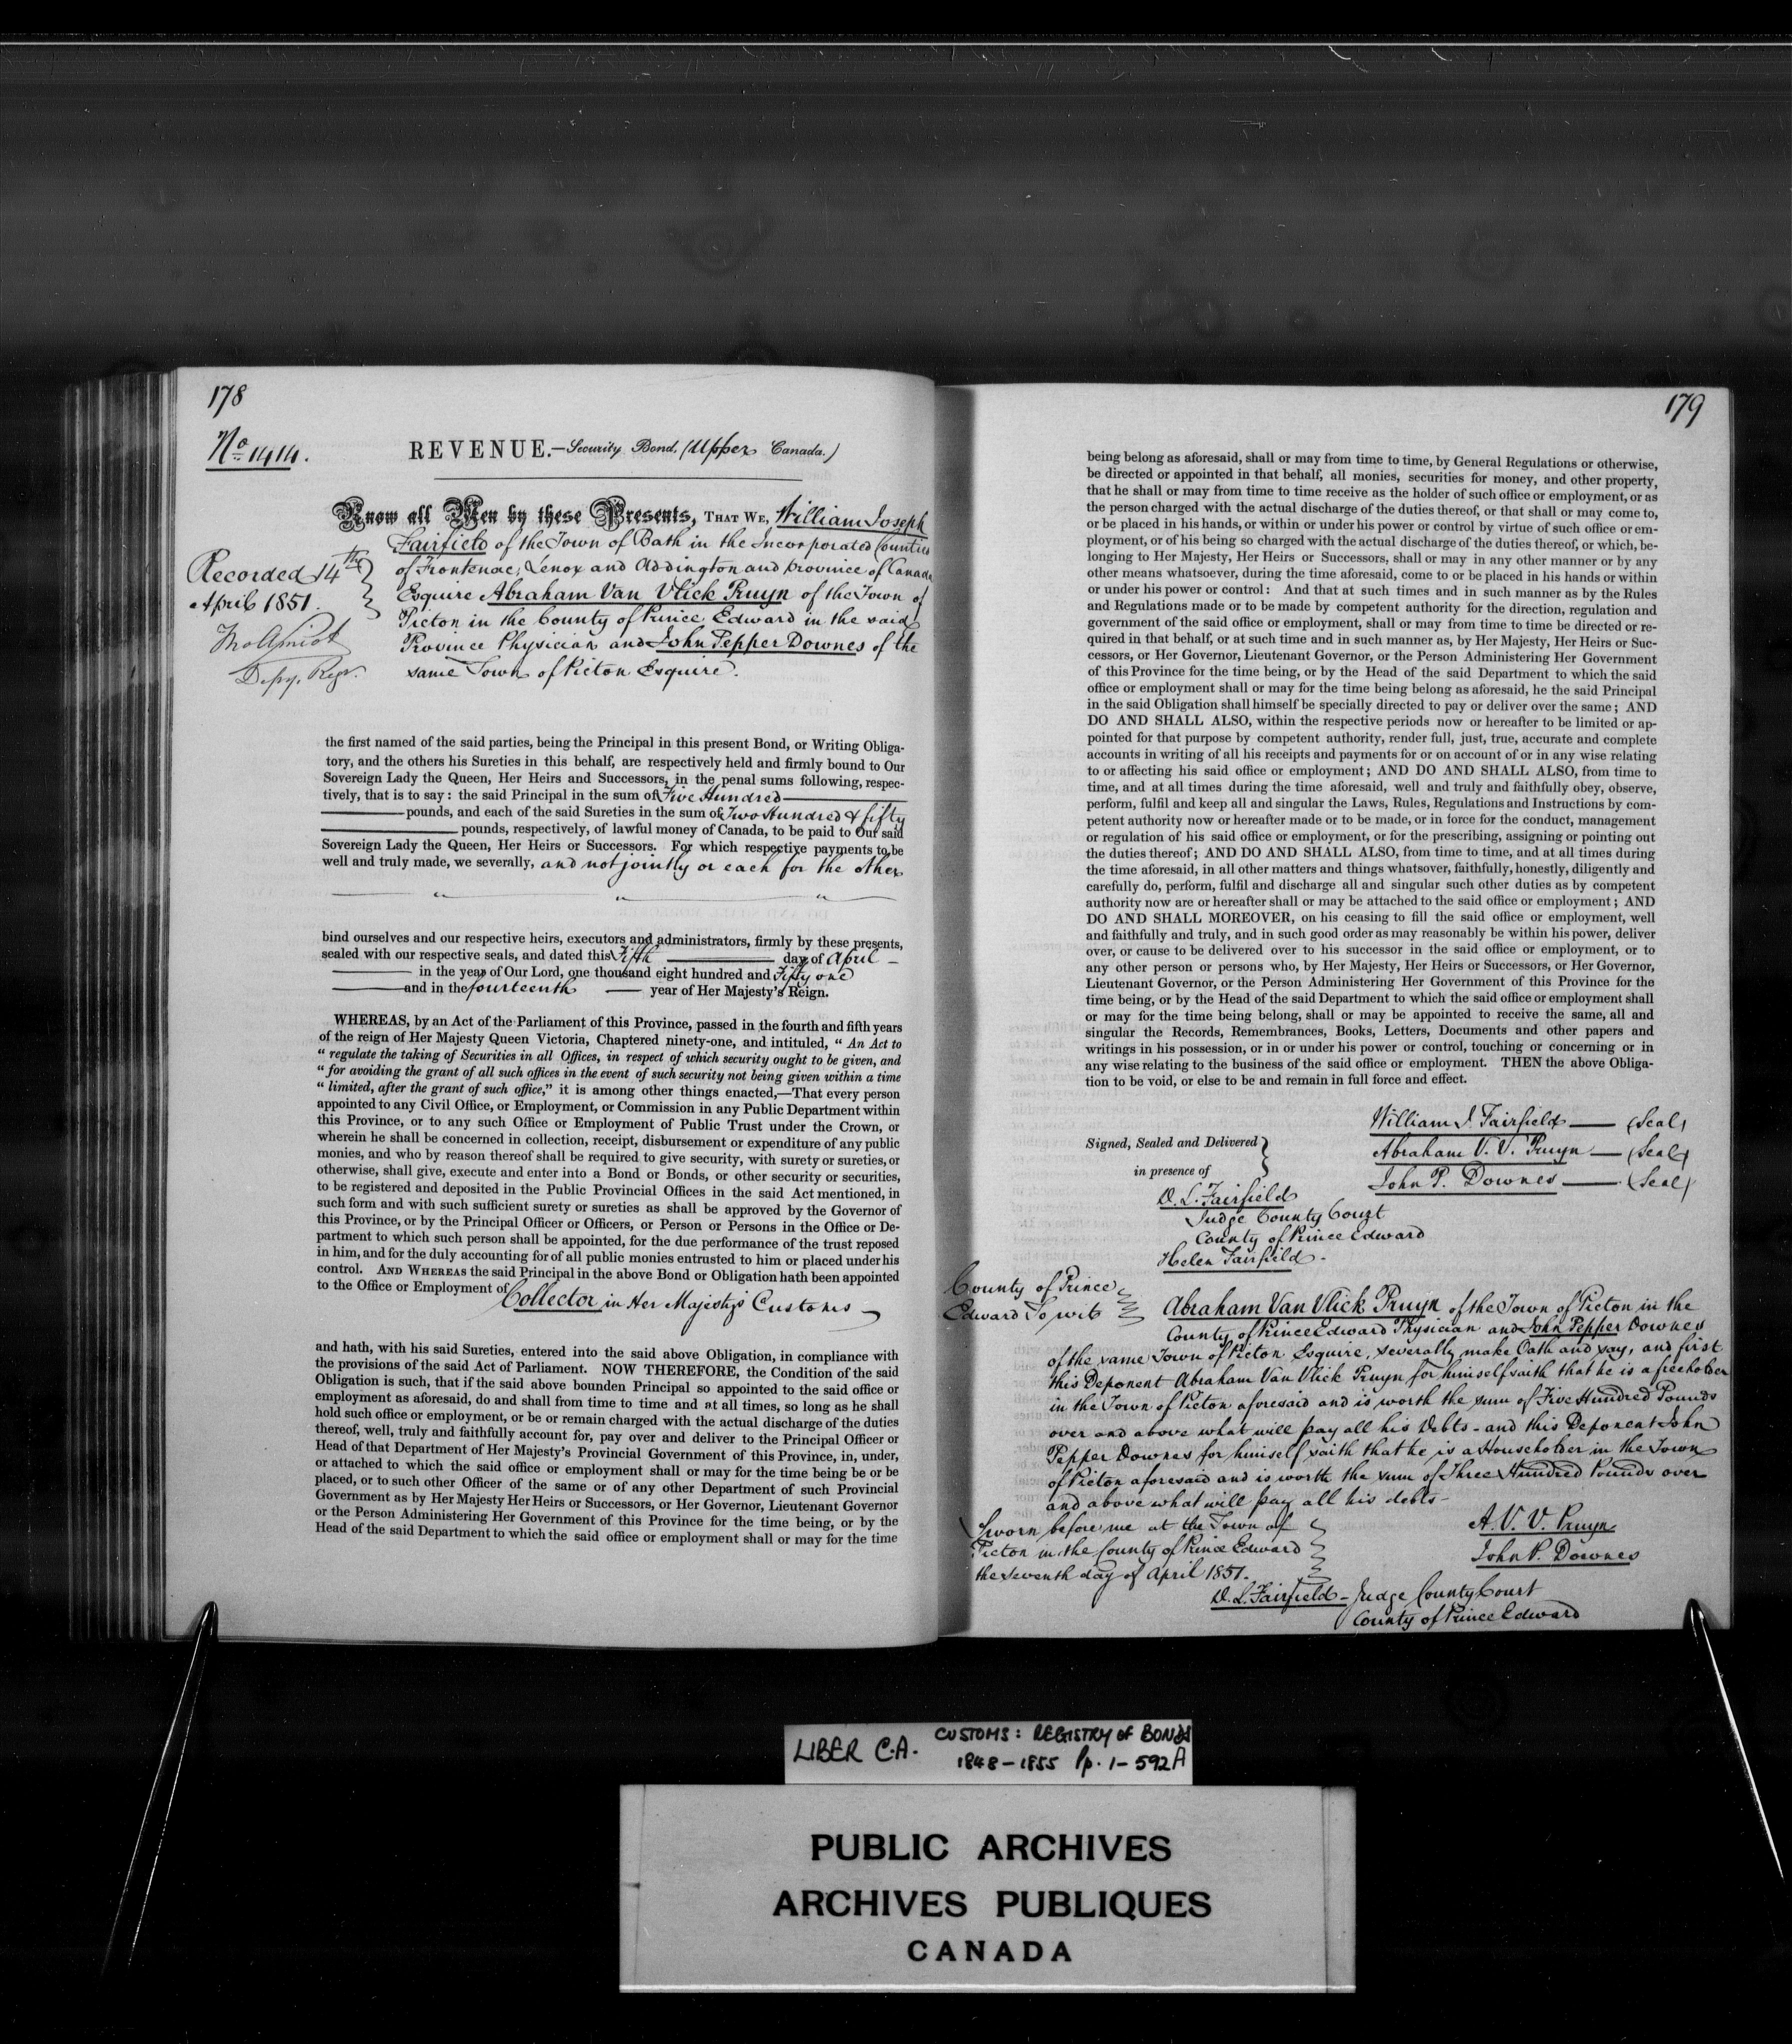 178
No 1414.
REVENUE.—Security Bond. (Upper Canada.)
Know all Men by these Presents, THAT WE, William Joseph
Fairfield of the Town of Bath in the Incorporated Counties
of Frontenac, Lenox and Addington and province of Canada
Esquire Abraham Van Vlick Pruyn of the Town of
Picton in the County of Prince Edward in the said
Province Physician and John Pepper Downes of the
same Town of Picton Esquire.
Recorded 14th
April 1851.
Depy. Regr.
the first named of the said parties, being the Principal in this present Bond, or Writing Obliga-
tory, and the others his Sureties in this behalf, are respectively held and firmly bound to Our
Sovereign Lady the Queen, Her Heirs and Successors, in the penal sums following, respec-
tively, that is to say: the said Principal in the sum of Five Hundred
pounds, and each of the said Sureties in the sum of Two Hundred & fifty
pounds, respectively, of lawful money of Canada, to be paid to Our said
Sovereign Lady the Queen, Her Heirs or Successors. For which respective payments to be
well and truly made, we severally, and not jointly or each for the other
bind ourselves and our respective heirs, executors and administrators, firmly by these presents,
sealed with our respective seals, and dated this Fifth day of April
in the year of Our Lord, one thousand eight hundred and Fifty one
and in the fourteenth year of Her Majesty's Reign.
WHEREAS, by an Act of the Parliament of this Province, passed in the fourth and fifth years
of the reign of Her Majesty Queen Victoria, Chaptered ninety-one, and intituled, " An Act to
" regulate the taking of Securities in all Offices, in respect of which security ought to be given, and
" for avoiding the grant of all such offices in the event of such security not being given within a time
" limited, after the grant of such office," it is among other things enacted,—That every person
appointed to any Civil Office, or Employment, or Commission in any Public Department within
this Province, or to any such Office or Employment of Public Trust under the Crown, or
wherein he shall be concerned in collection, receipt, disbursement or expenditure of any public
monies, and who by reason thereof shall be required to give security, with surety or sureties, or
otherwise, shall give, execute and enter into a Bond or Bonds, or other security or securities,
to be registered and deposited in the Public Provincial Offices in the said Act mentioned, in
such form and with such sufficient surety or sureties as shall be approved by the Governor of
this Province, or by the Principal Officer or Officers, or Person or Persons in the Office or De-
partment to which such person shall be appointed, for the due performance of the trust reposed
in him, and for the duly accounting for of all public monies entrusted to him or placed under his
control. AND WHEREAS the said Principal in the above Bond or Obligation hath been appointed
to the Office or Employment of
Collector in Her Majesty's Customs
and hath, with his said Sureties, entered into the said above Obligation, in compliance with
the provisions of the said Act of Parliament. NOW THEREFORE, the Condition of the said
Obligation is such, that if the said above bounden Principal so appointed to the said office or
employment as aforesaid, do and shall from time to time and at all times, so long as he shall
hold such office or employment, or be or remain charged with the actual discharge of the duties
thereof, well, truly and faithfully account for, pay over and deliver to the Principal Officer or
Head of that Department of Her Majesty's Provincial Government of this Province, in, under,
or attached to which the said office or employment shall or may for the time being be or be
placed, or to such other Officer of the same or of any other Department of such Provincial
Government as by Her Majesty Her Heirs or Successors, or Her Governor, Lieutenant Governor
or the Person Administering Her Government of this Province for the time being, or by the
Head of the said Department to which the said office or employment shall or may for the time
179
being belong as aforesaid, shall or may from time to time, by General Regulations or otherwise,
be directed or appointed in that behalf, all monies, securities for money, and other property,
that he shall or may from time to time receive as the holder of such office or employment, or as
the person charged with the actual discharge of the duties thereof, or that shall or may come to,
or be placed in his hands, or within or under his power or control by virtue of such office or em-
ployment, or of his being so charged with the actual discharge of the duties thereof, or which, be-
longing to Her Majesty, Her Heirs or Successors, shall or may in any other manner or by any
other means whatsoever, during the time aforesaid, come to or be placed in his hands or within
or under his power or control: And that at such times and in such manner as by the Rules
and Regulations made or to be made by competent authority for the direction, regulation and
government of the said office or employment, shall or may from time to time be directed or re-
quired in that behalf, or at such time and in such manner as, by Her Majesty, Her Heirs or Suc-
cessors, or Her Governor, Lieutenant Governor, or the Person Administering Her Government
of this Province for the time being, or by the Head of the said Department to which the said
office or employment shall or may for the time being belong as aforesaid, he the said Principal
in the said Obligation shall himself be specially directed to pay or deliver over the same; AND
DO AND SHALL ALSO, within the respective periods now or hereafter to be limited or ap-
pointed for that purpose by competent authority, render full, just, true, accurate and complete
accounts in writing of all his receipts and payments for or on account of or in any wise relating
to or affecting his said office or employment; AND DO AND SHALL ALSO, from time to
time, and at all times during the time aforesaid, well and truly and faithfully obey, observe,
perform, fulfil and keep all and singular the Laws, Rules, Regulations and Instructions by com-
petent authority now or hereafter made or to be made, or in force for the conduct, management
or regulation of his said office or employment, or for the prescribing, assigning or pointing out
the duties thereof; AND DO AND SHALL ALSO, from time to time, and at all times during
the time aforesaid, in all other matters and things whatsover, faithfully, honestly, diligently and
carefully do, perform, fulfil and discharge all and singular such other duties as by competent
authority now are or hereafter shall or may be attached to the said office or employment; AND
DO AND SHALL MOREOVER, on his ceasing to fill the said office or employment, well
and faithfully and truly, and in such good order as may reasonably be within his power, deliver
over, or cause to be delivered over to his successor in the said office or employment, or to
any other person or persons who, by Her Majesty, Her Heirs or Successors, or Her Governor,
Lieutenant Governor, or the Person Administering Her Government of this Province for the
time being, or by the Head of the said Department to which the said office or employment shall
or may for the time being belong, shall or may be appointed to receive the same, all and
singular the Records, Remembrances, Books, Letters, Documents and other papers and
writings in his possession, or in or under his power or control, touching or concerning or in
any wise relating to the business of the said office or employment. THEN the above Obliga-
tion to be void, or else to be and remain in full force and effect.
William J. Fairfield (Seal)
Abraham V. V. Pruyn (Seal)
John P. Downes (Seal)
Signed, Sealed and Delivered
in presence of
D. L. Fairfield
Judge County Court
County of Prince Edward
Helen Fairfield.
County of Prince
Edward To wit
Abraham Van Vlick Pruyn of the Town of Picton in the
County of Prince Edward Physician and John Pepper Downes
of the same Town of Picton Esquire, severally make Oath and say, and first
this Deponent Abraham Van Vlick Pruyn for himself saith that he is a freeholder
in the Town of Picton aforesaid and is worth the sum of Five Hundred Pounds
over and above what will pay all his Debts - and this Deponent John
Pepper Downes for himself saith that he is a Householder in the Town
of Picton aforesaid and is worth the sum of Three Hundred Pounds over
and above what will pay all his debts-
Sworn before me at the Town of
Picton in the County of Prince Edward
the seventh day of April 1851.
A. V. V. Pruyn
John P. Downes
D. L. Fairfield - Judge County Court
County of Prince Edward
LIBER C.A. CUSTOMS: REGISTRY OF BONDS
1848-1855 Pp. 1-592A
PUBLIC ARCHIVES
ARCHIVES PUBLIQUES
CANADA